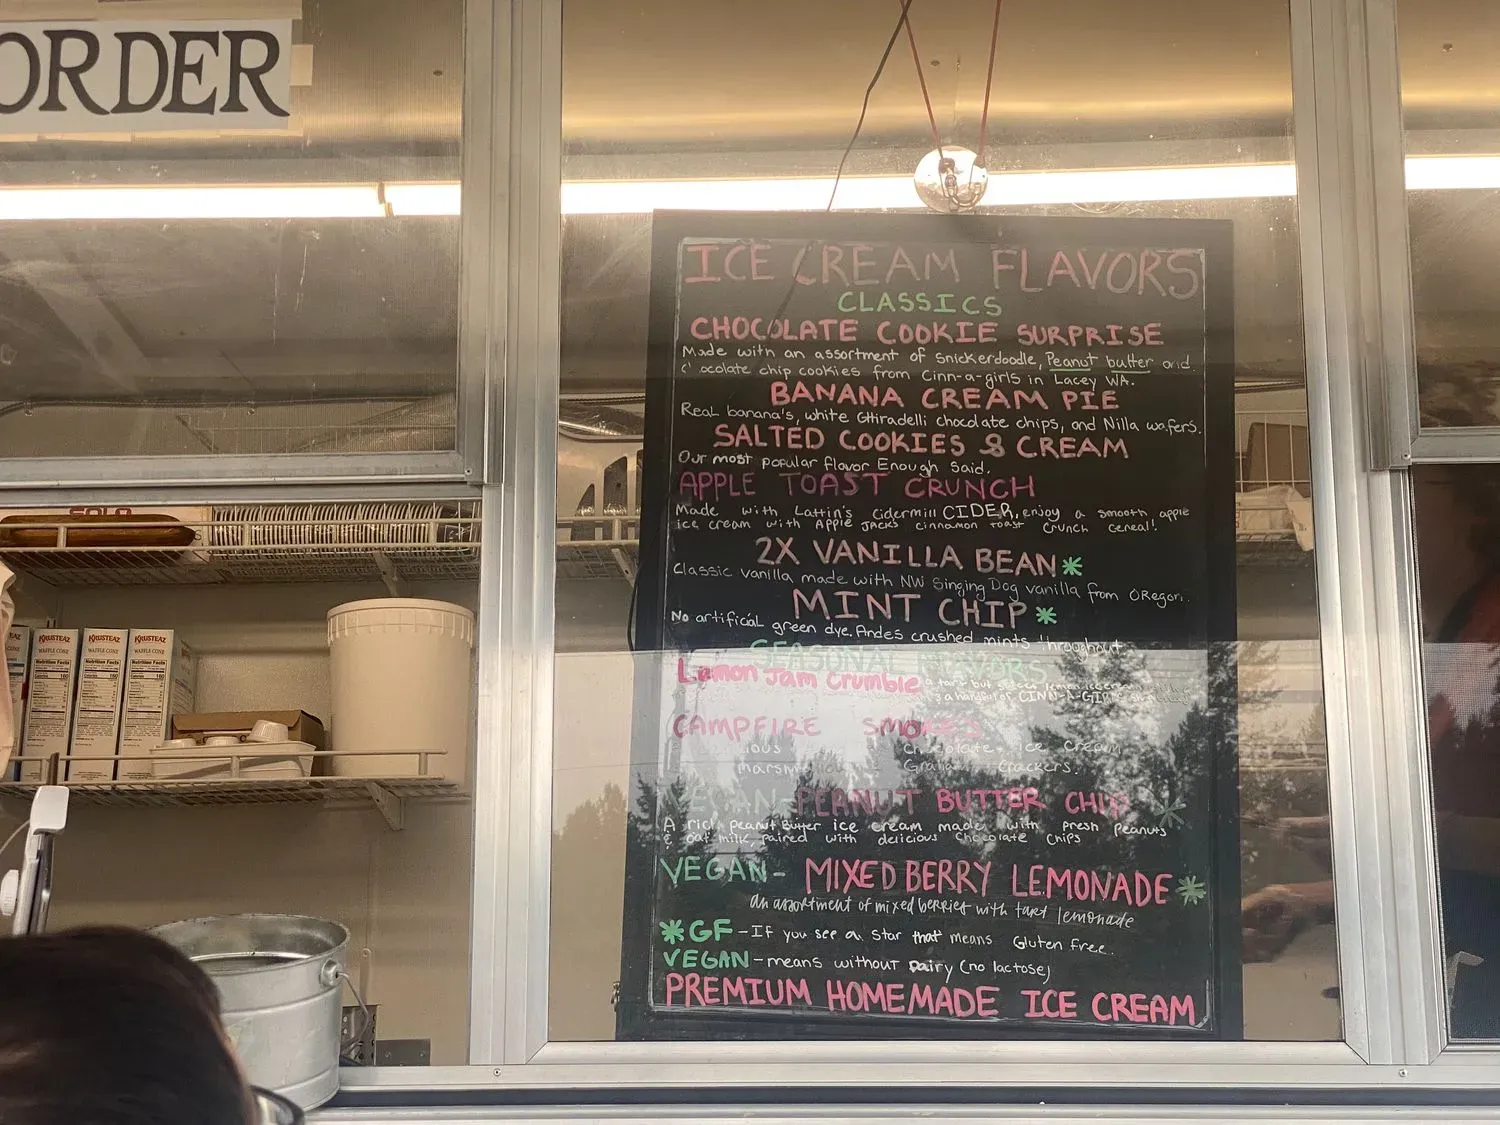 ORDER
ICE CREAM FLAVORS
CLASSICS
CHOCOLATE COOKIE SURPRISE
Made with an assortment of snickerdoodle, Peanut butter and
chip cookies from Cinn-a-girls in Lacey WA.
BANANA CREAM PIE
Real banana's, white Ghiradelli chocolate chips, and Nilla wafers.
SALTED COOKIES & CREAM
Our most popular flavor Enough Said.
APPLE TOAST CRUNCH
Made with Lattin's Cidermill CIDER, enjoy a smooth apple
ice cream with APPLE JACKS cinnamon toast crunch cereal!
2X VANILLA BEAN*
Classic vanilla made with NW Singing Dog vanilla from ORegon.
MINT CHIP*
No artificial green dye. Andes crushed mints throughout
SEASONAL FLAVORS
Lemon Jam Crumble
a tart but sweet lemon
a handful of CINN-A-GIRLS
CAMPFIRE SMORES
chocolate ice cream
Graham Crackers.
VEGAN-PEANUT BUTTER CHIP*
A rich Peanut Butter ice cream made with fresh peanuts
& oat milk, paired with delicious chocolate chips
VEGAN- MIXED BERRY LEMONADE*
an assortment of mixed berries with tart lemonade
*GF-If you see a star that means Gluten Free.
VEGAN-means without Dairy (no lactose)
PREMIUM HOMEMADE ICE CREAM
SOLO
KRUSTEAZ
WAFFLE CONE
Nutrition Facts
160
KRUSTEAZ
WAFFLE CONE
Nutrition Facts
160
KRUSTEAZ
WAFFLE CONE
Nutrition Facts
160